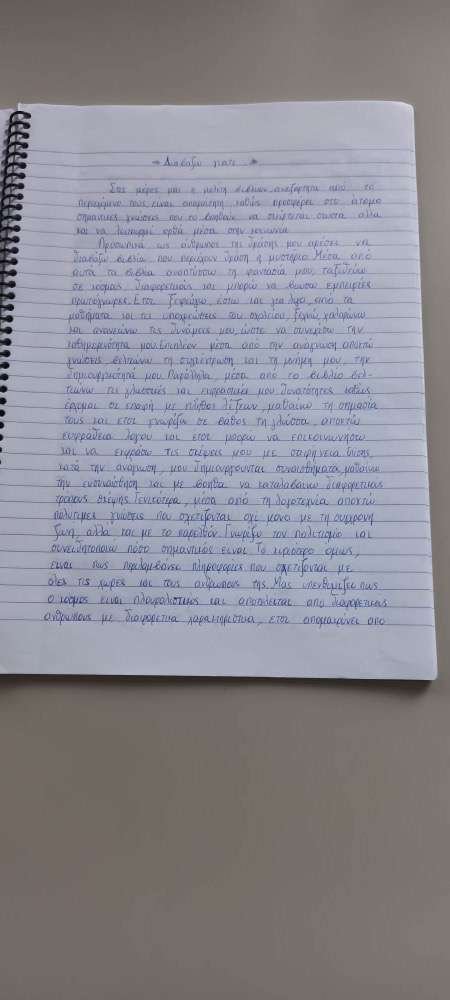 «Διαβάζω γιατί...»
Στις μέρες μας η μελέτη βιβλίων, ανεξάρτητα από το
περιεχόμενο τους, είναι απαραίτητη, καθώς προσφέρει στο άτομο
σημαντικές γνώσεις που το βοηθούν να σκέφτεται σωστά αλλά
και να λειτουργεί ορθά μέσα στην κοινωνία.
Προσωπικά ως άνθρωπος της δράσης μου αρέσει να
διαβάζω βιβλία που περιέχουν δράση η μυστήριο. Μέσα από
αυτά τα βιβλία αναπτύσσω τη φαντασία μου, ταξιδεύω
σε κόσμους διαφορετικούς και μπορώ να βιώσω εμπειρίες
πρωτόγνωρες. Έτσι ξεφεύγω, έστω και για λίγο, από τα
μαθήματα και τις υποχρεώσεις του σχολείου, ξεχνώ, χαλαρώνω
και ανανεώνω τις δυνάμεις μου, ώστε να συνεχίσω την
καθημερινότητα μου. Επιπλέον μέσα από την ανάγνωση αποκτώ
γνώσεις, βελτιώνω τη συγκέντρωση και τη μνήμη μου, την
δημιουργικότητά μου. Παράλληλα, μέσα από το βιβλίο βελ-
τιώνω τις γλωσσικές και εκφραστικές μου δυνατότητες καθώς
έρχομαι σε επαφή με πλήθος λέξεων, μαθαίνω τη σημασία
τους και έτσι γνωρίζω σε βάθος τη γλώσσα, αποκτώ
ευφράδεια λόγου και έτσι μπορώ να επικοινωνήσω
και να εκφράσω τις σκέψεις μου με σαφήνεια. Επίσης,
κατά την ανάγνωση, μου δημιουργούνται συναισθήματα, μαθαίνω
την ενσυναίσθηση και με βοηθά να καταλαβαίνω διαφορετικούς
τρόπους σκέψης. Γενικότερα, μέσα από τη λογοτεχνία αποκτώ
πολύτιμες γνώσεις που σχετίζονται όχι μόνο με τη σύγχρονη
ζωή αλλά και με το παρελθόν. Γνωρίζω τον πολιτισμό και
συνειδητοποιώ πόσο σημαντικός είναι. Το κυριότερο όμως,
είναι πως περιλαμβάνει πληροφορίες που σχετίζονται με
όλες τις χώρες και τους ανθρώπους της. Μας υπενθυμίζει πως
ο κόσμος είναι πλουραλιστικός και αποτελείται από διαφορετικούς
ανθρώπους με διαφορετικά χαρακτηριστικά, έτσι απομακρύνει από